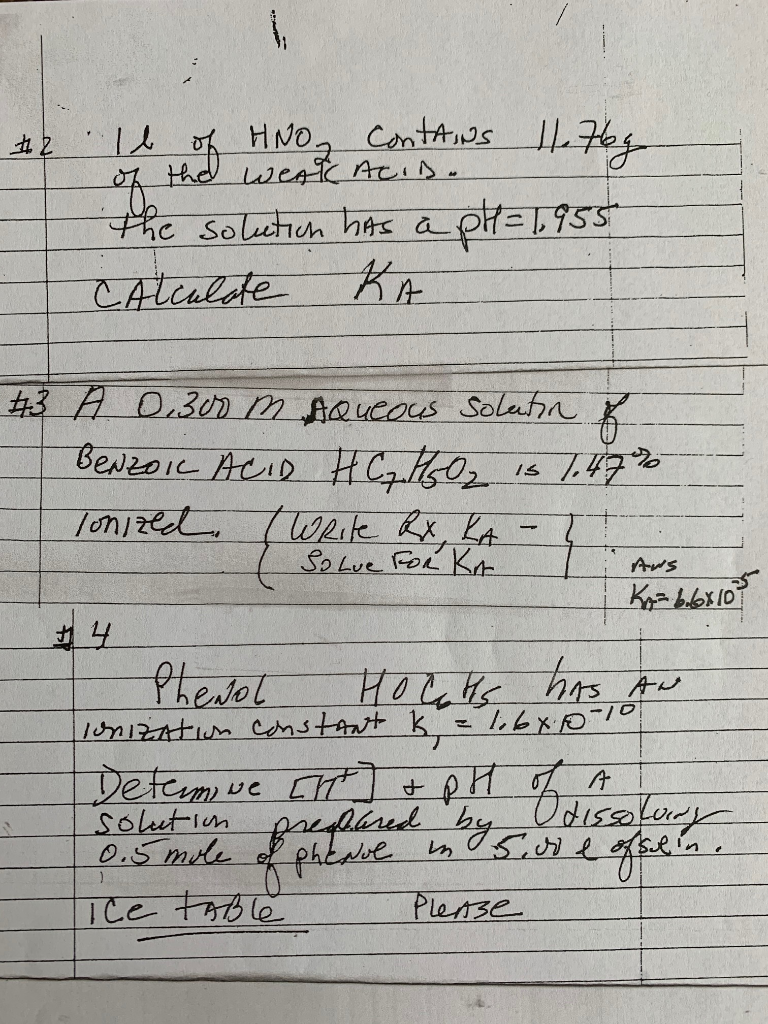 1.
#2 1 l of HNO2 contAins 11.76g
of the weak Acid.
the solution hAs a pH=1.955
CAlculate KA
#3 A 0.300 m AQueous Solution of
BENZOIC ACID HC7H5O2 is 1.47%
Ionized. (WRite Rx, KA -
Solve FOR KA)
ANS
KA= 6.6x10-5
# 4
PheNol HOC6H5 hAs AN
IONIZAtION constANt K1 = 1.6x10-10
Determine [H+] + pH of A
Solution prepared by dissolving
0.5 mole of phenol in 5.00 l of sol'n.
ICe tABle PleASe